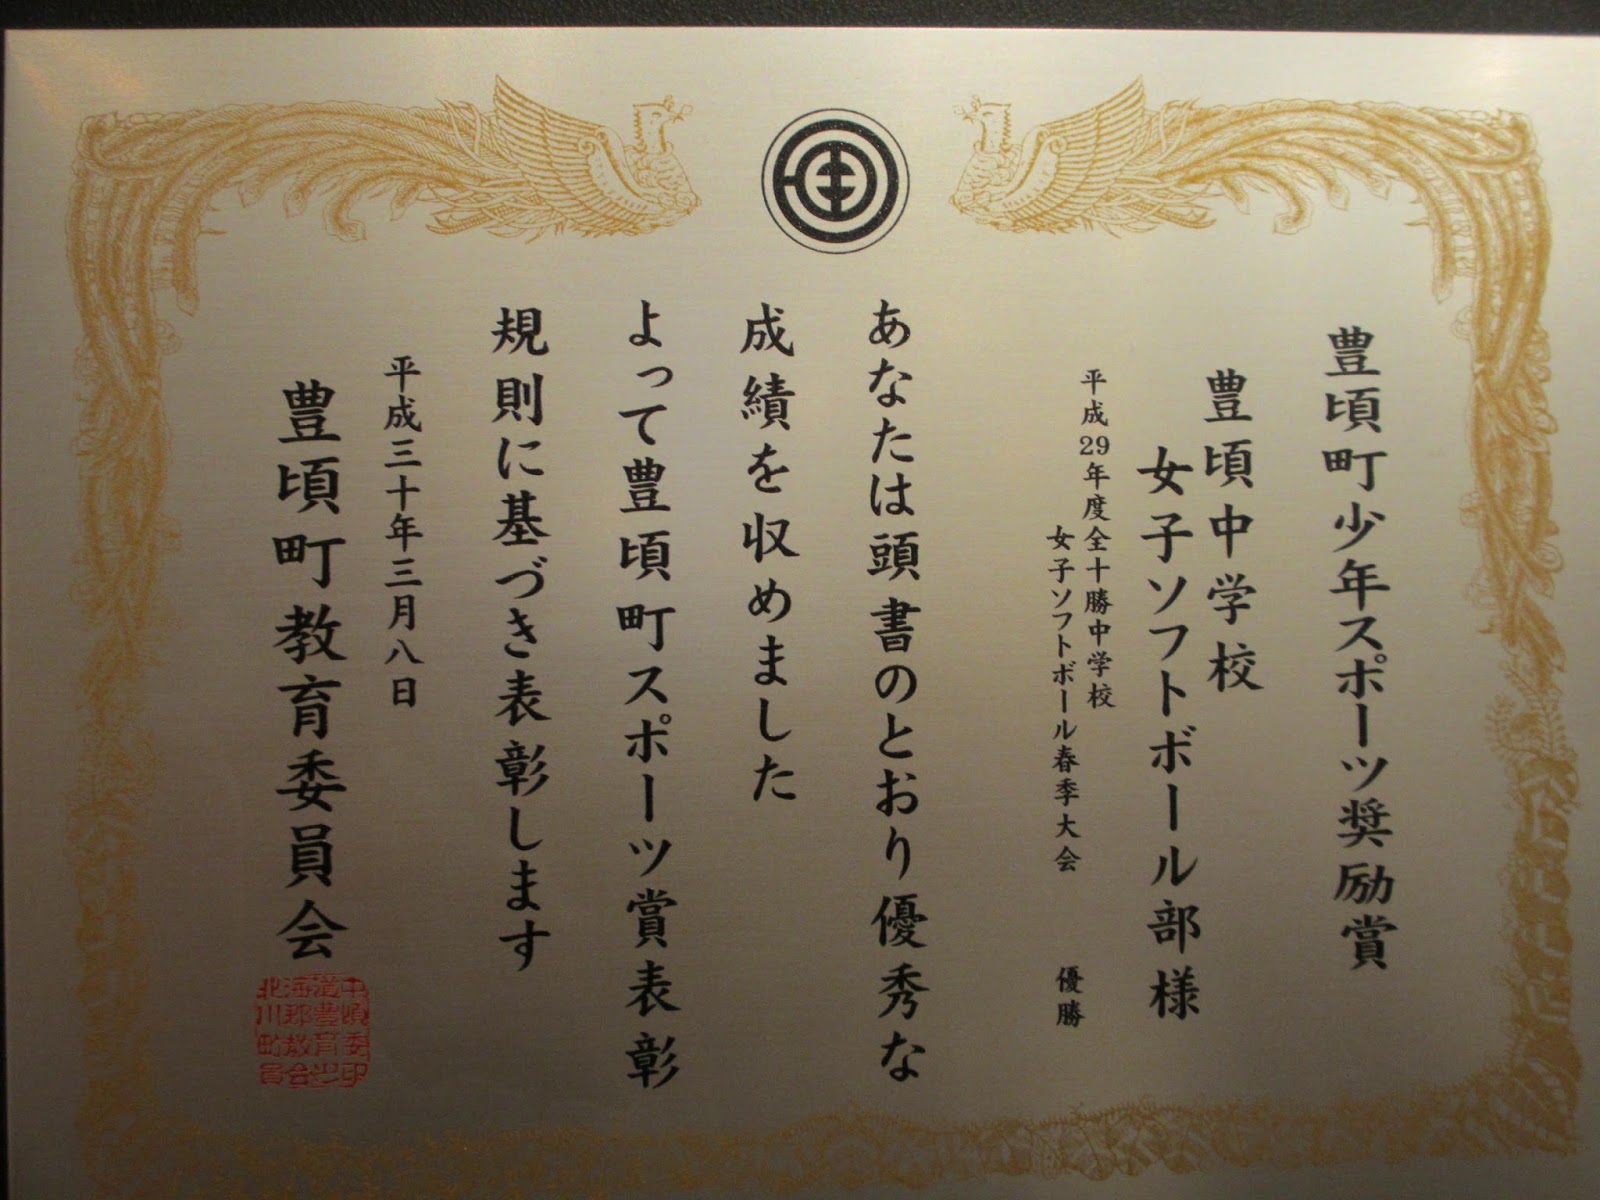 豊頃町少年スポーツ奨励賞
豊頃中学校
女子ソフトボール部様
平成29年度全十勝中学校
女子ソフトボール春季大会 優勝
あなたは頭書のとおり優秀な
成績を収めました
よって豊頃町スポーツ賞表彰
規則に基づき表彰します
平成三十年三月八日
豊頃町教育委員会